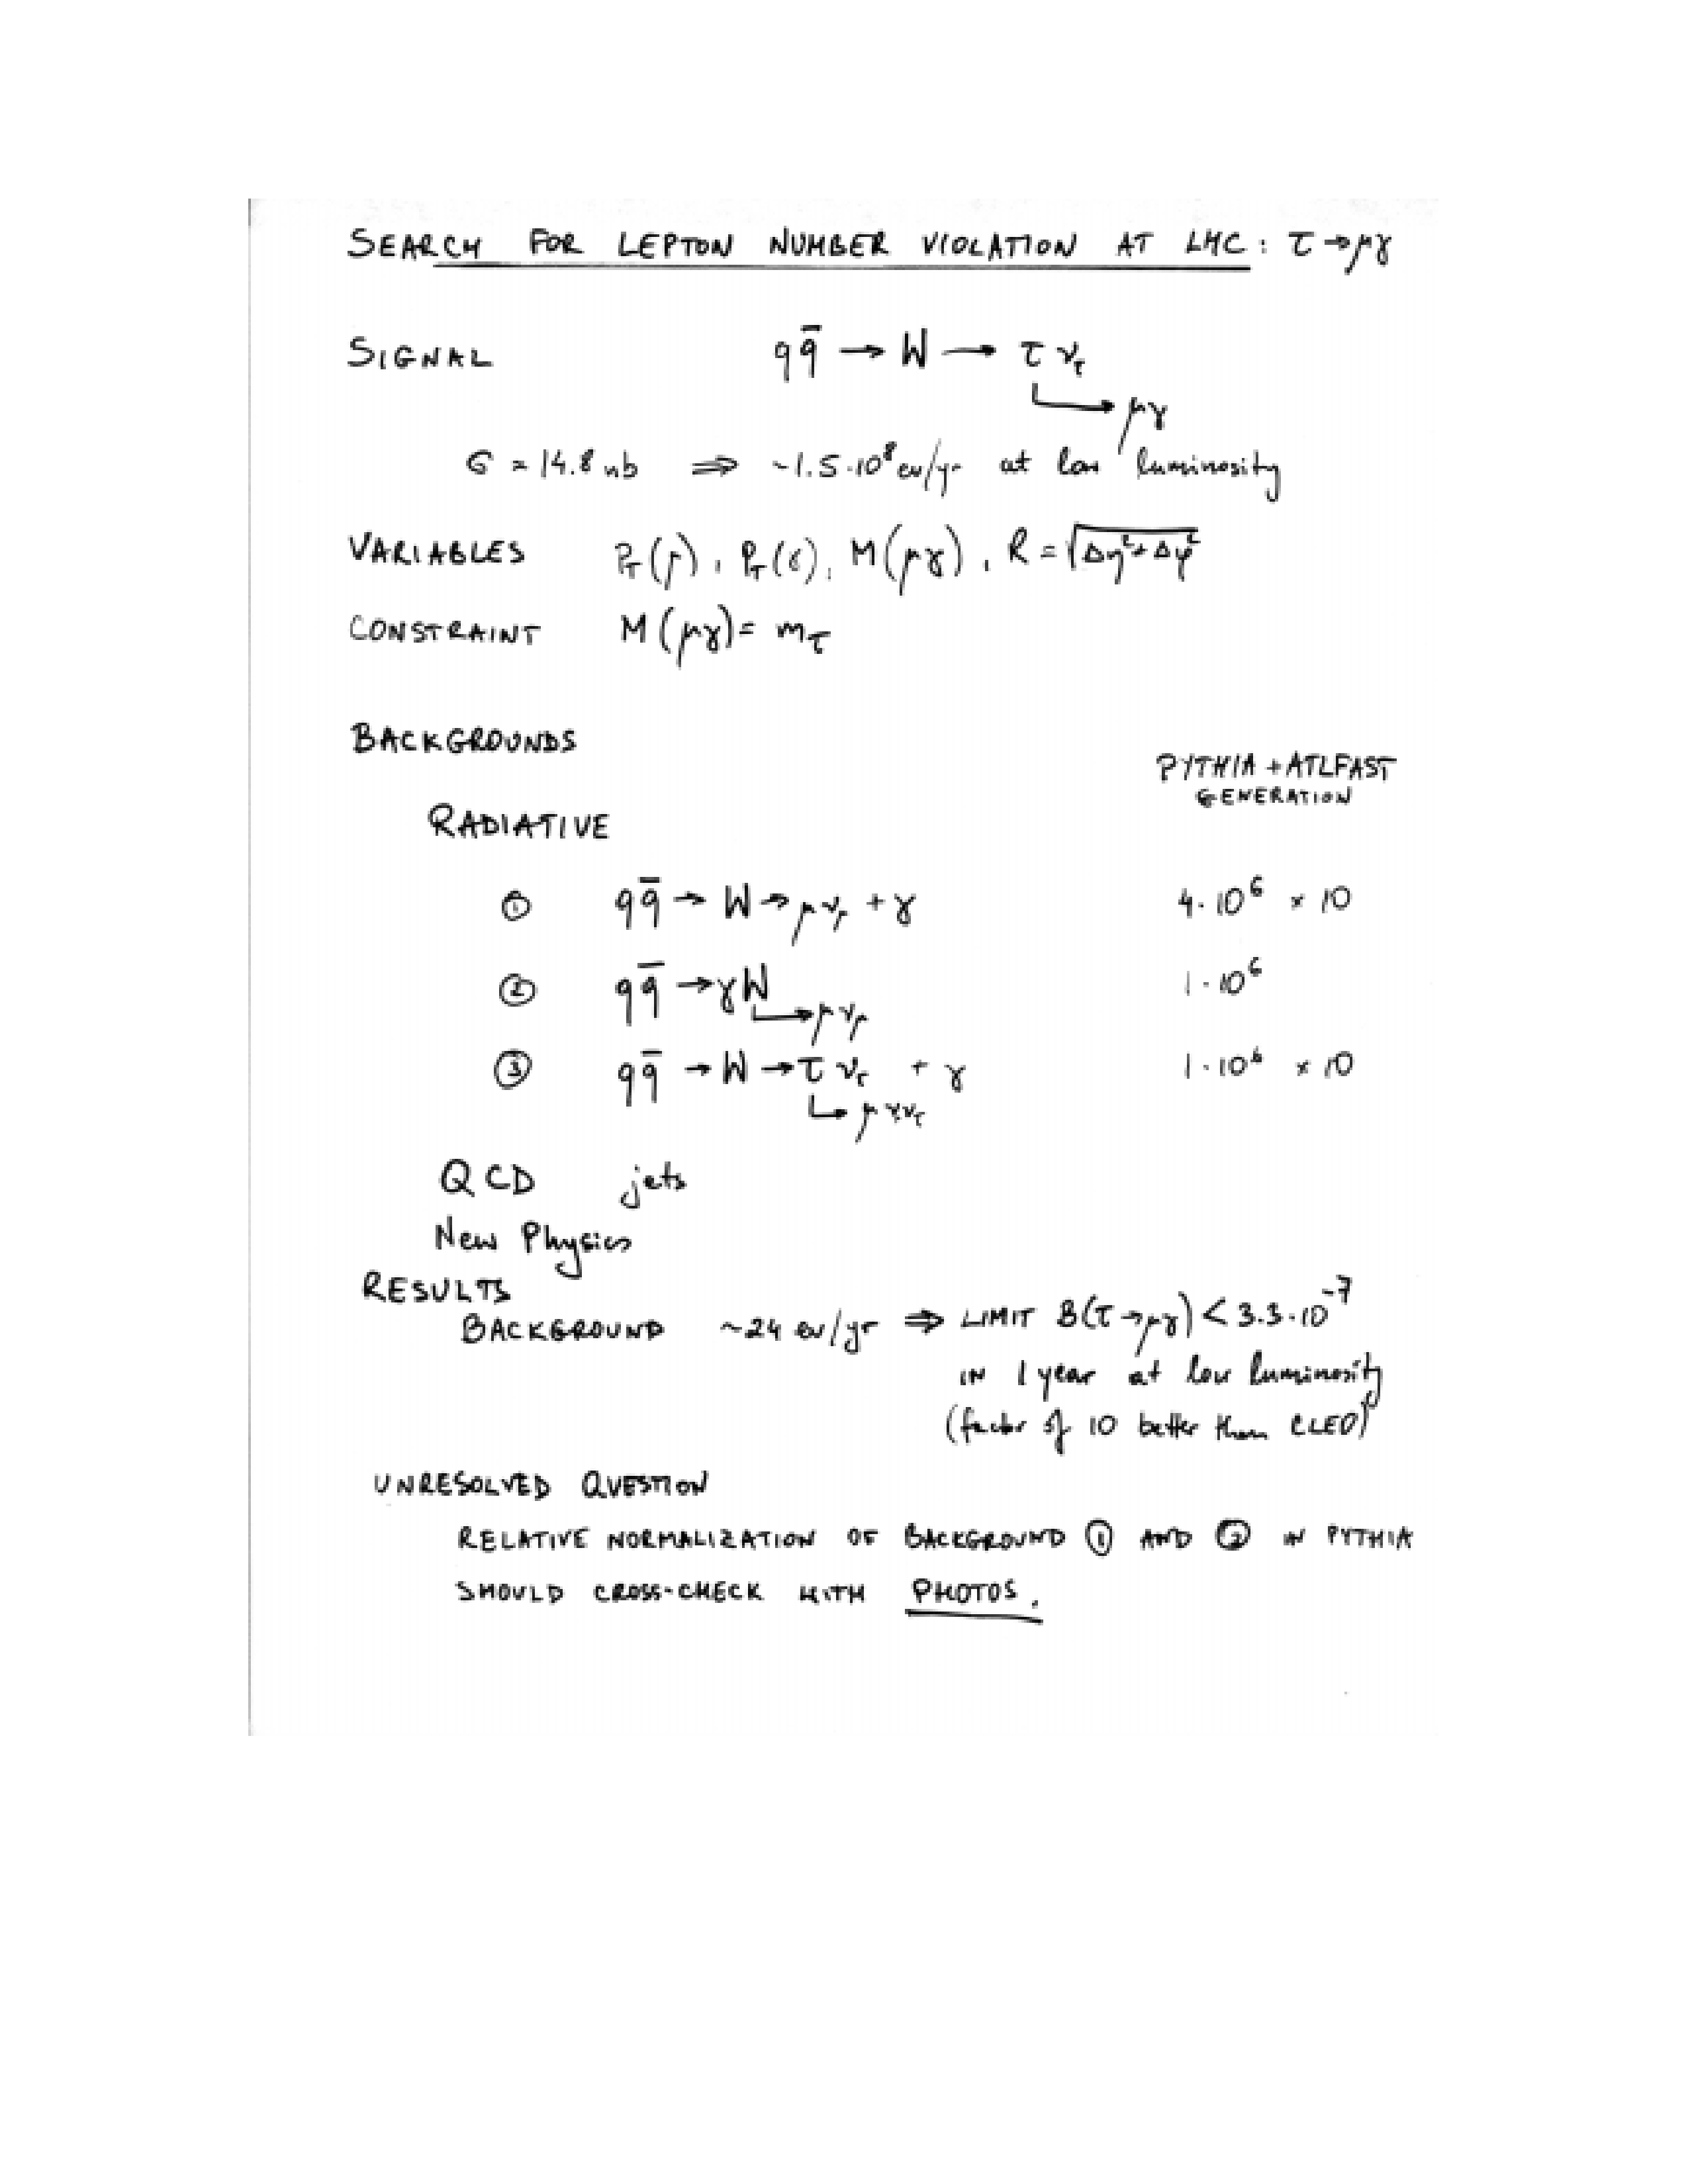 SEARCH FOR LEPTON NUMBER VIOLATION AT LHC: τ→μγ
SIGNAL q q̄ → W → τ ν_τ
→ μγ
σ = 14.8 nb ⇒ ~1.5·10⁸ ev/yr at low luminosity
VARIABLES P_T(μ), P_T(γ), M(μγ), R = √(Δη²+Δφ²)
CONSTRAINT M(μγ) = m_τ
BACKGROUNDS
PYTHIA + ATLFAST
GENERATION
RADIATIVE
① q q̄ → W → μ ν_μ + γ 4·10⁶ × 10
② q q̄ → γW 1·10⁶
→ μ ν_μ
③ q q̄ → W → τ ν_τ + γ 1·10⁶ × 10
→ μ ν ν_τ
QCD jets
New Physics
RESULTS
BACKGROUND ~24 ev/yr ⇒ LIMIT B(τ→μγ) < 3.3·10⁻⁷
IN 1 year at low luminosity
(factor of 10 better than CLEO)
UNRESOLVED QUESTION
RELATIVE NORMALIZATION OF BACKGROUND ① AND ② IN PYTHIA
SHOULD CROSS-CHECK WITH PHOTOS.